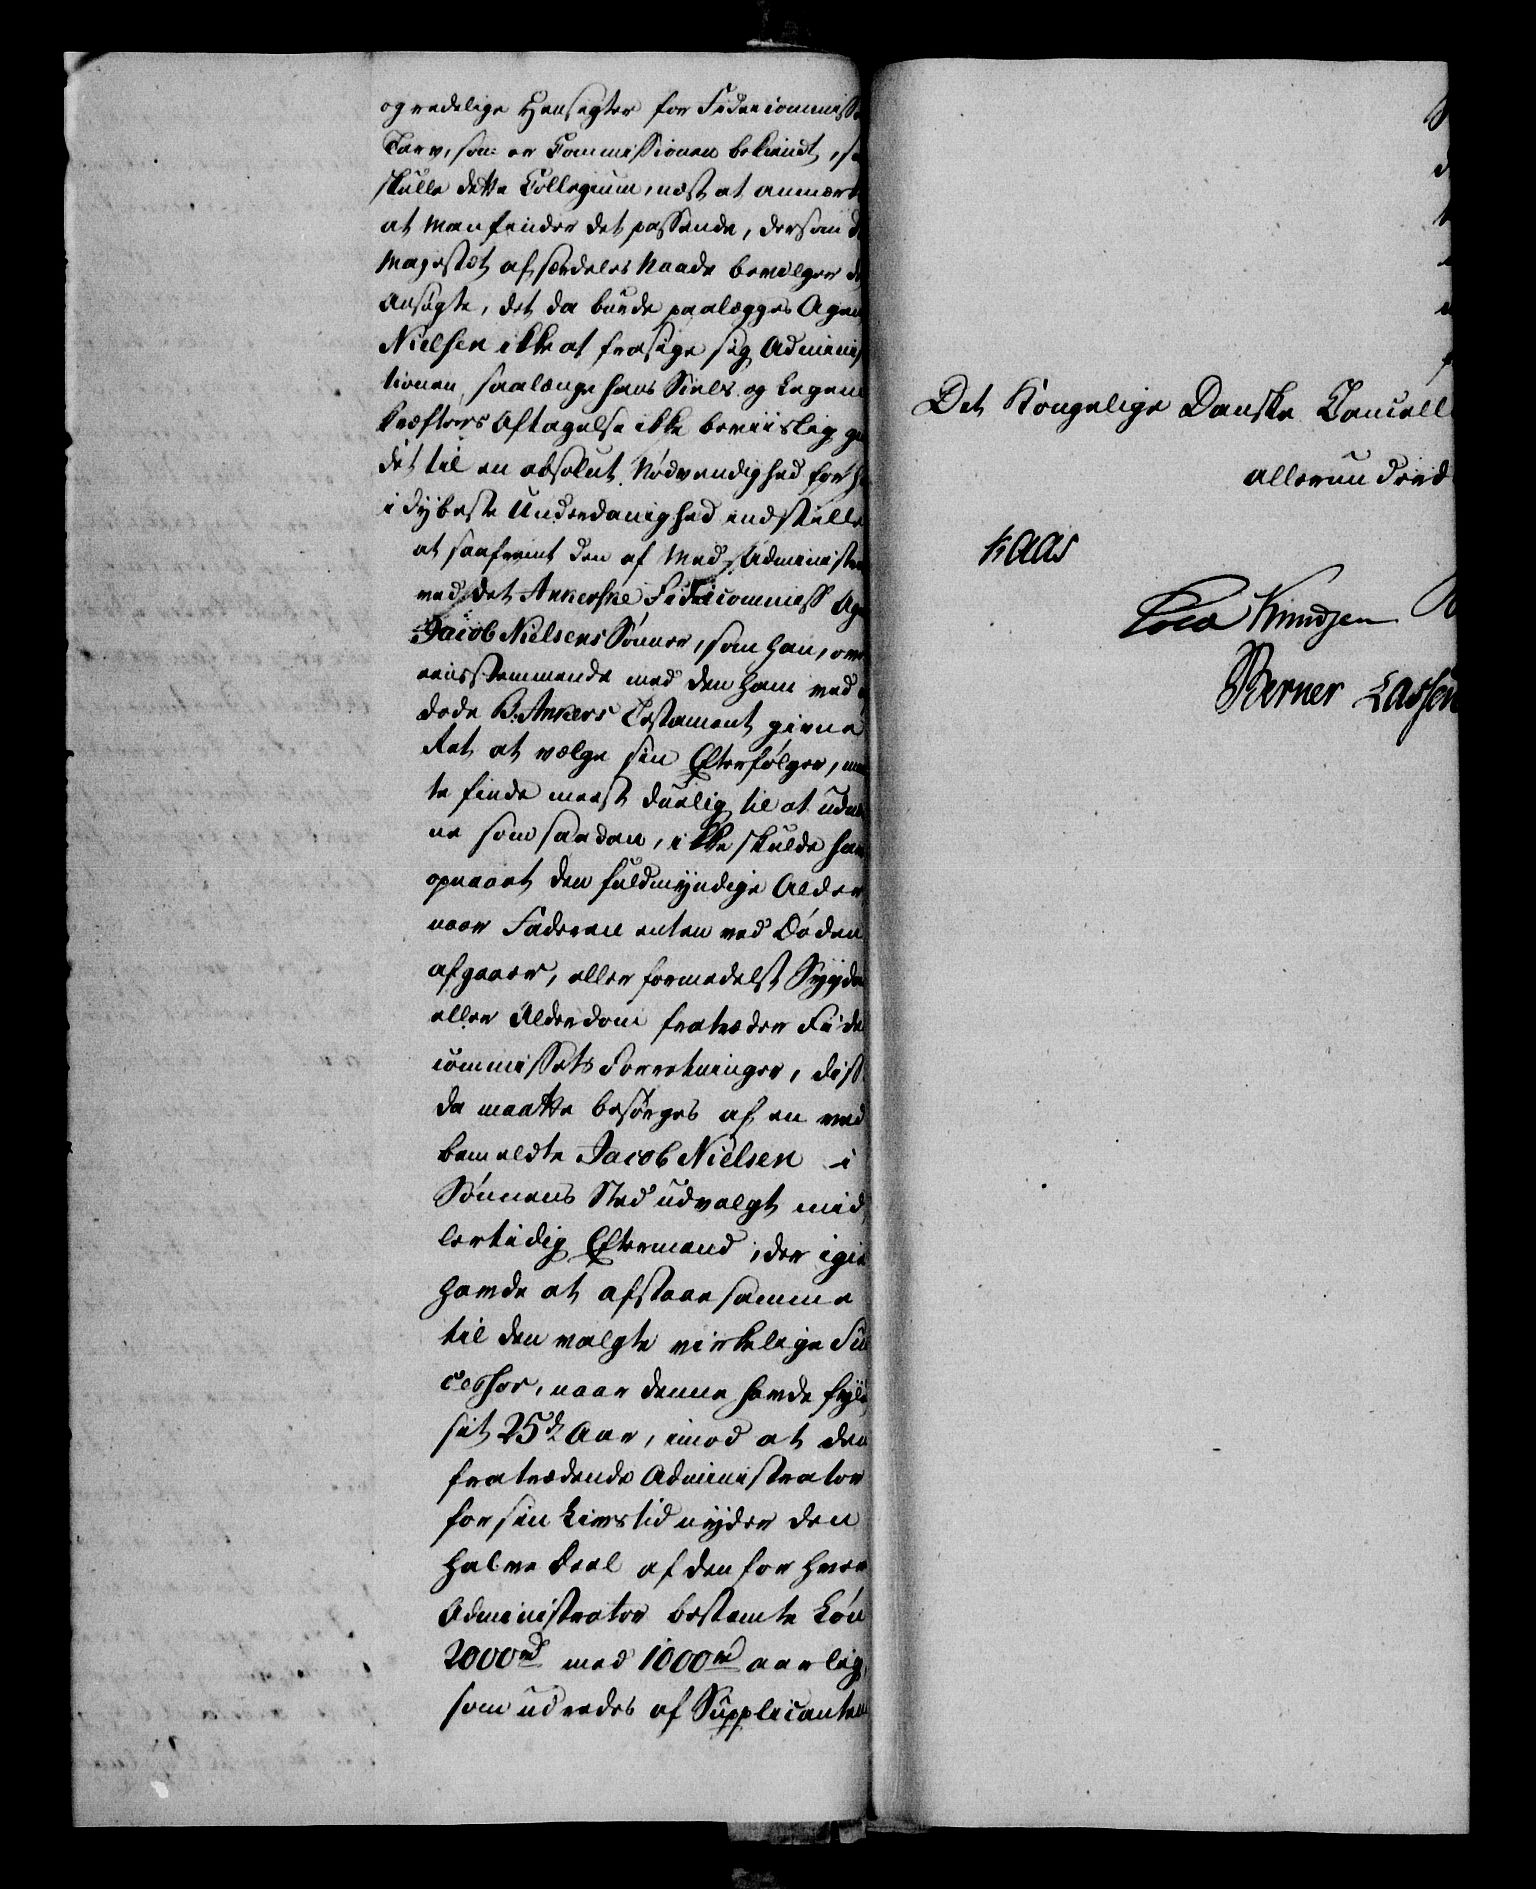 og redelige Hensigter for Fideicommiss
Tarv, som er Commissionen bekiendt, s
skulle dette Collegium, næst at anmærk
at man finder det passende, dersom D
Majestæt af særdeles Naade bevilger d
ansøgte, det da burde paalægges Agen
Nielsen ikke at frasige sig Adminis
tionen, saalænge hans Siels og Legem
Kræfters Aftagelse ikke beviislig gi
det til en absolut Nødvendighed for h
i dybeste Underdanighed indstille
at saafremt den af Med Administr
ved det Ankerske Fideicommiss Ag
Jacob Nielsens Sønner, som han, over
eensstemmende med den ham ved a
døde B. Ankers Testament givne
Ret at vælge sin Efterfølger, maa
te finde meest duelig til at udn
ne som saadan, ikke skulde have
opnaaet den fuldmyndige Alder
naar Faderen enten ved Døden
afgaaer, eller formedelst Sygdo
eller Alderdom fratræder Fidei
commissets Forretninger, disse
da maatte besørges af en ved
bemeldte Jacob Nielsen i
Sønnens Sted udvalgt mid
lertidig Eftermand, der igie
havde at afstaae samme
til den valgte virkelige Suc
cessor, naar denne havde fyld
sit 25de Aar, imod at den
fratrædende Administrator
for sin Livstid nyder den
halve Deel af den for hver
Administrator bestemte Løn
2000 rd med 1000 rd aarlig,
som udredes af Supplicanten
Det Kongelige Danske Cancell
allerunderd
Kaas
Cold Knudsen
Berner Lassen